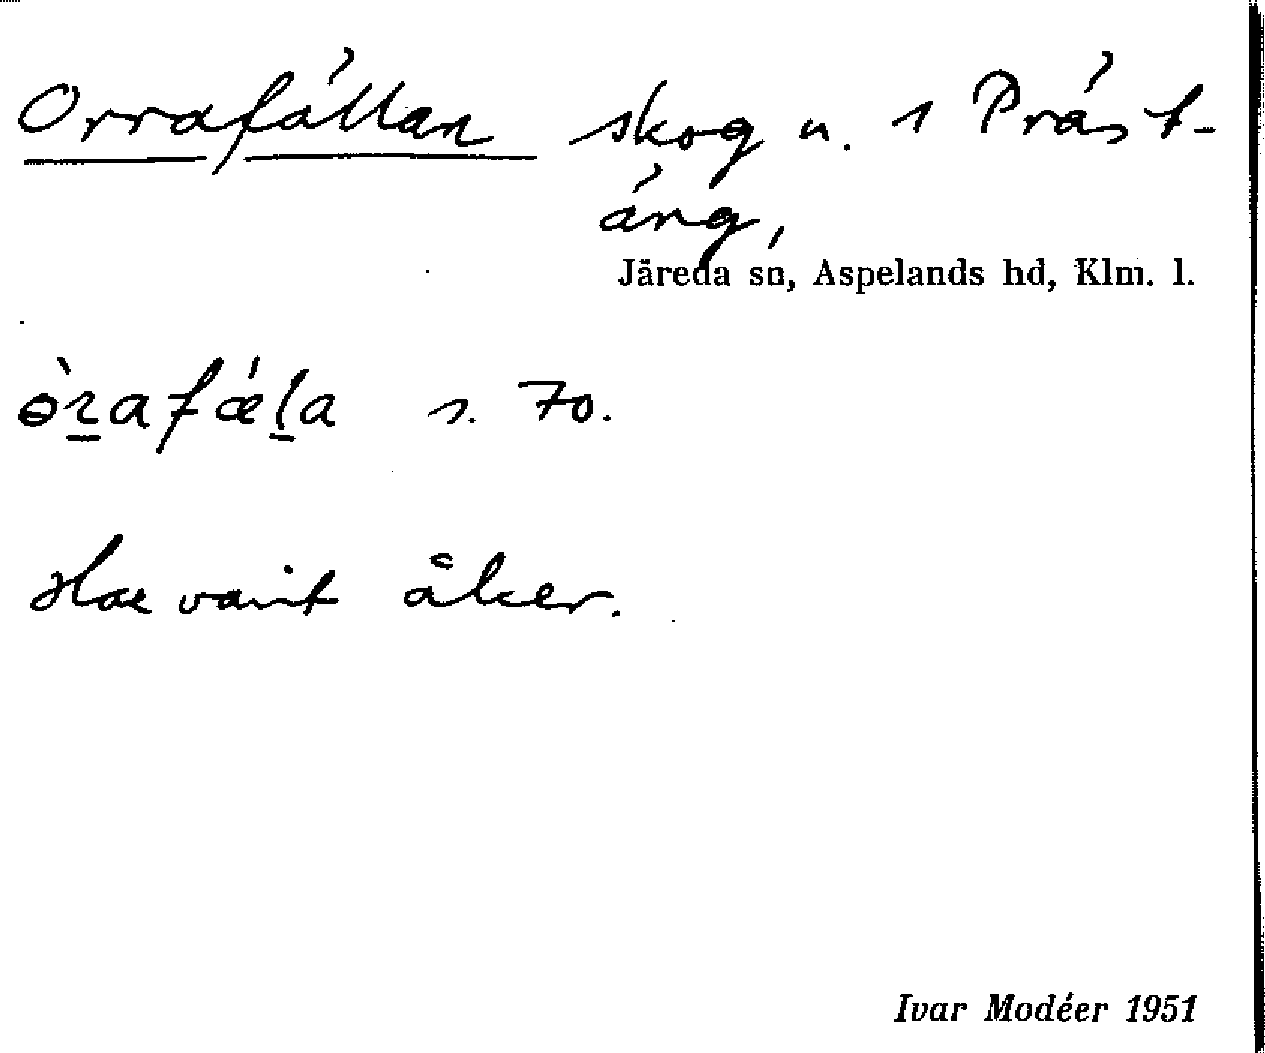 Orrafällan skog n. 1 Präst-
äng,
Järeda sn, Aspelands hd, Klm. l.
ɵ̀r̲afǽl̲a s. 70.
Har varit åker.
Ivar Modéer 1951